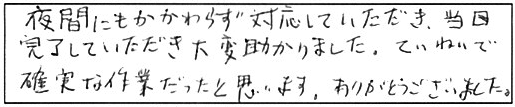 夜間にもかかわらず対応していただき、当日
完了していただき大変助かりました。ていねいで
確実な作業だったと思います。ありがとうございました。